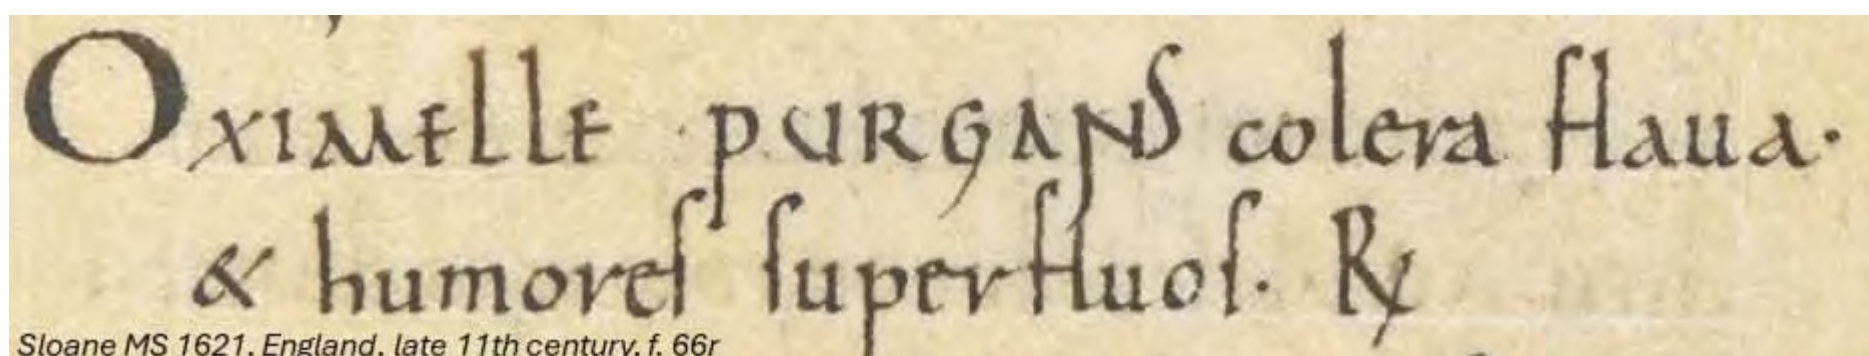 OXIMELLE PURGANS colera flaua·
& humores superfluos· ℞
Sloane MS 1621, England, late 11th century, f. 66r